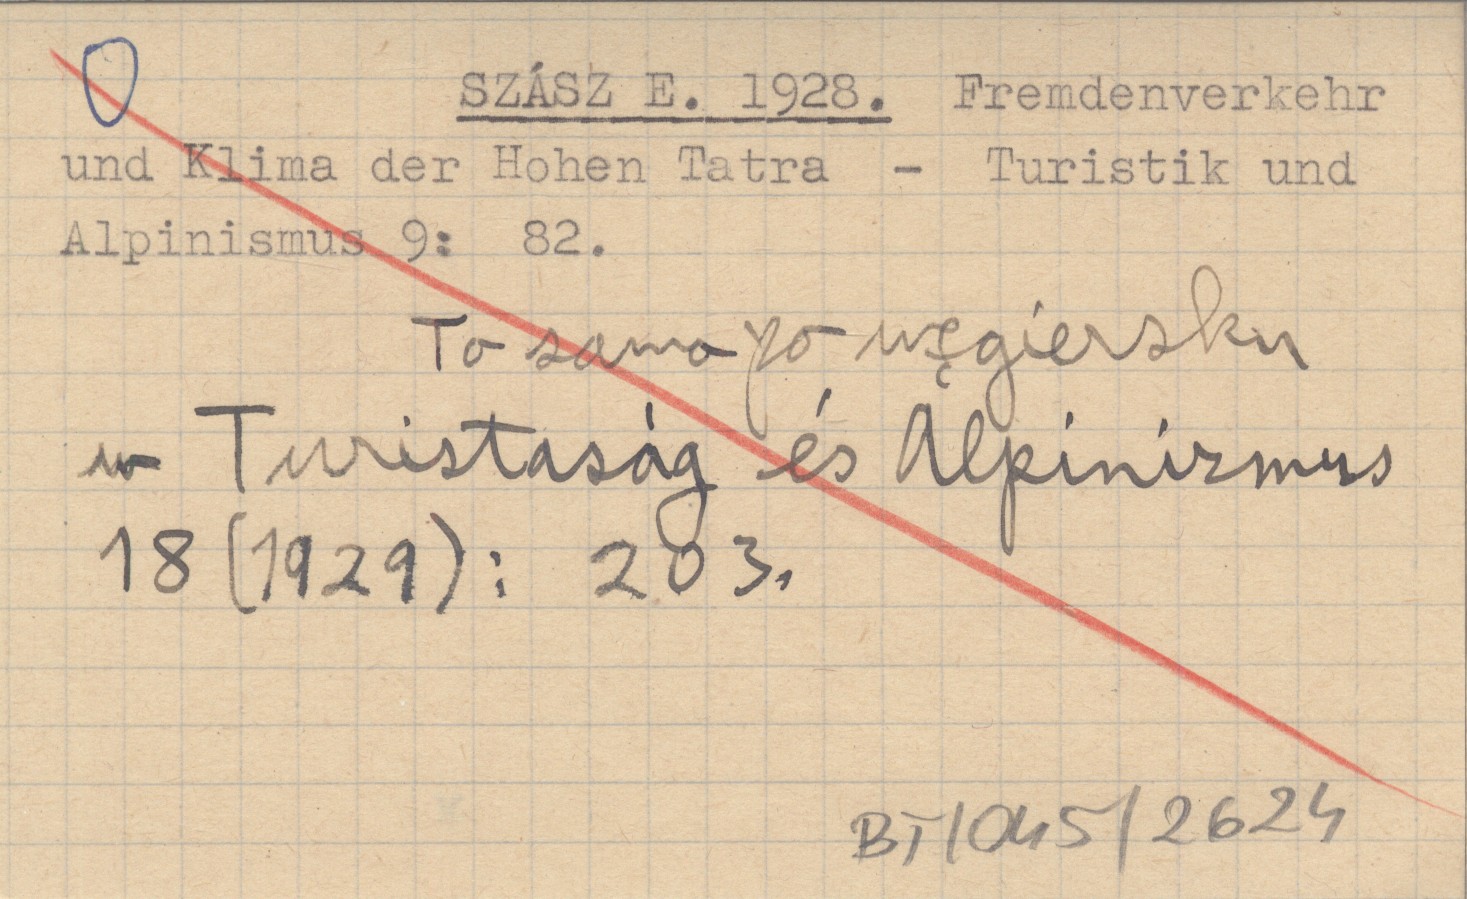 SZÁSZ E. 1928. Fremdenverkehr
und Klima der Hohen Tatra - Turistik und
Alpinismus 9: 82.
To samo po węgiersku
w Turistaság és Alpinizmus
18 (1929): 203.
BT/045/2624